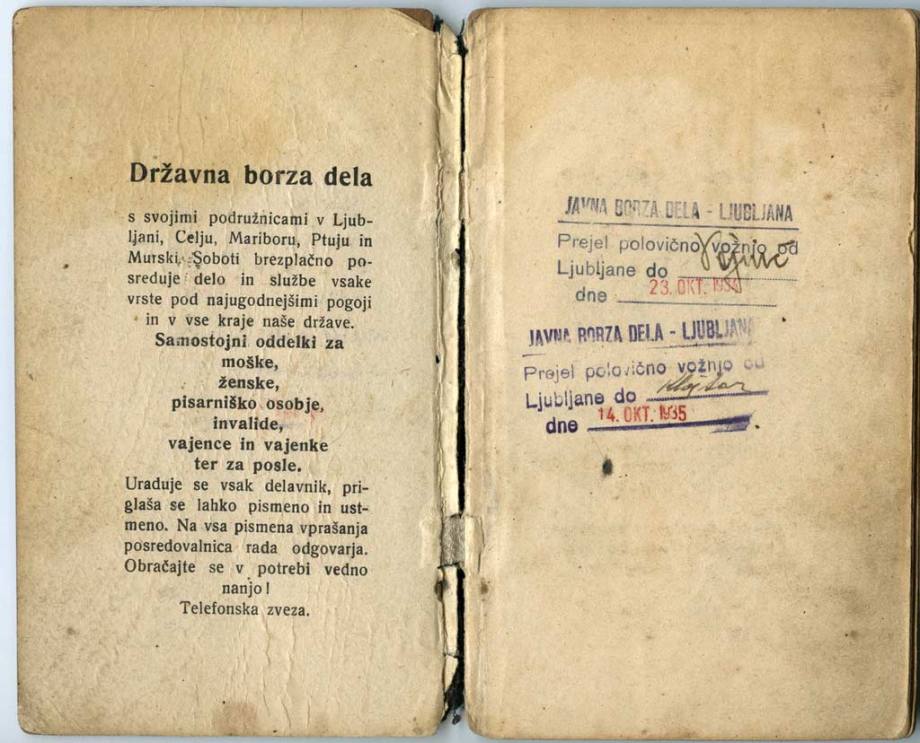 Državna borza dela
s svojimi podružnicami v Ljub-
ljani, Celju, Mariboru, Ptuju in
Murski Soboti brezplačno po-
sreduje delo in službe vsake
vrste pod najugodnejšimi pogoji
in v vse kraje naše države.
Samostojni oddelki za
moške,
ženske,
pisarniško osobje,
invalide,
vajence in vajenke
ter za posle.
Uraduje se vsak delavnik, pri-
glaša se lahko pismeno in ust-
meno. Na vsa pismena vprašanja
posredovalnica rada odgovarja.
Obračajte se v potrebi vedno
nanjo!
Telefonska zveza.
JAVNA BORZA DELA - LJUBLJANA
Prejel polovično vožnjo od
Ljubljane do
dne 23. OKT. 1934
JAVNA BORZA DELA - LJUBLJANA
Prejel polovično vožnjo od
Ljubljane do
dne 14. OKT. 1935